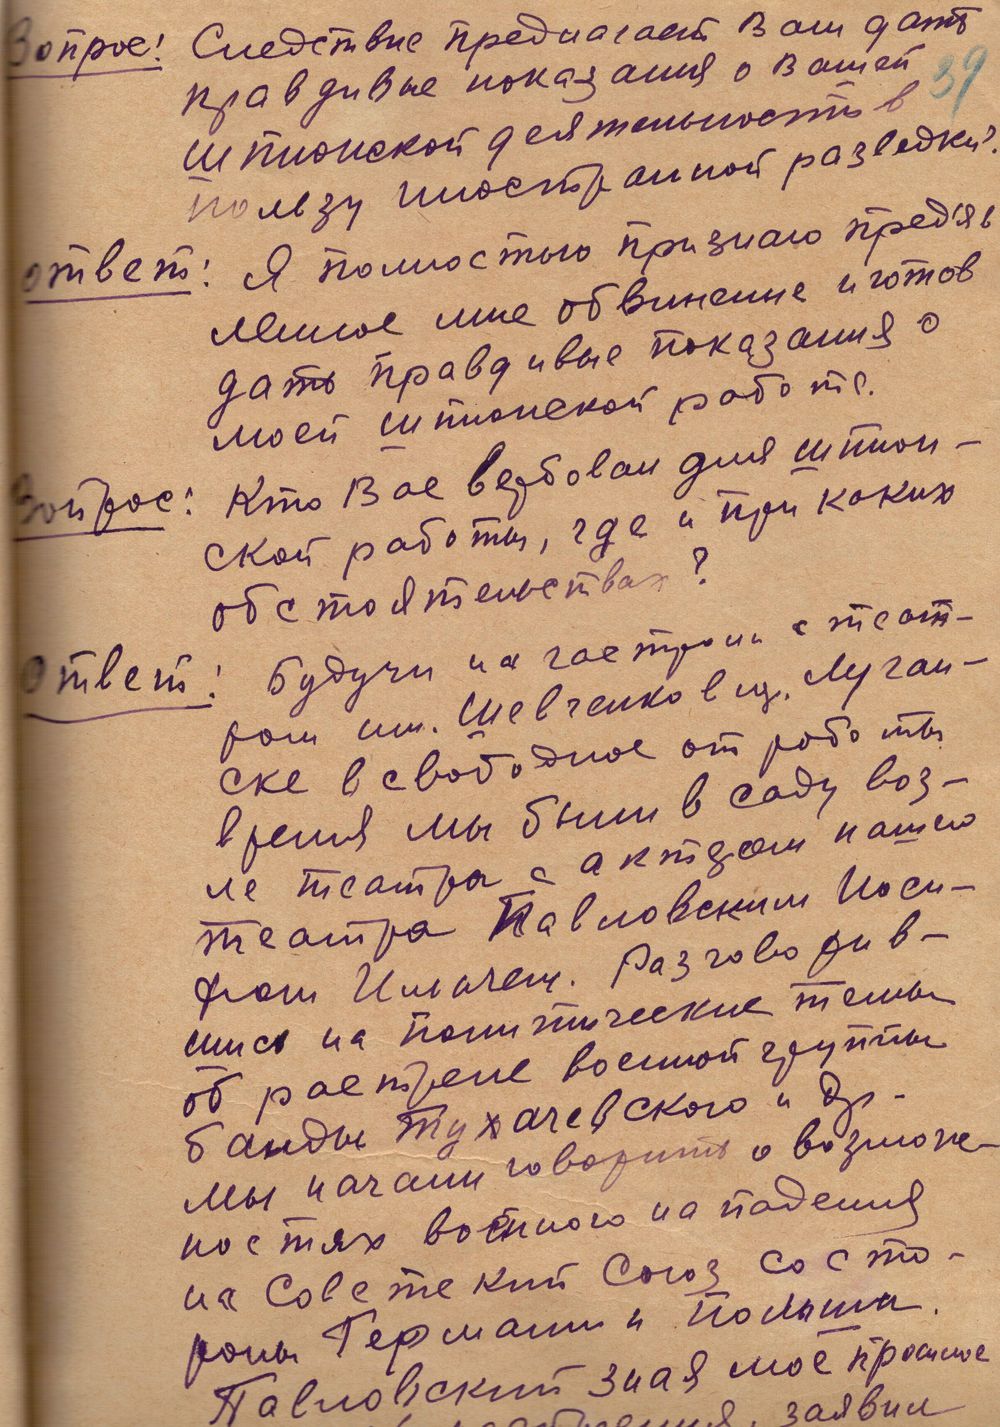 Вопрос: Следствие предлагает Вам дать
39
правдивые показания о Вашей
шпионской деятельность в
пользу иностранной разведки?
Ответ: Я полностью признаю предъяв
ленное мне обвинение и готов
дать правдивые показания о
моей шпионской работе.
Вопрос: Кто Вас вербовал для шпион-
ской работы, где и при каких
обстоятельствах?
Ответ: Будучи на гастроли с теат-
ром им. Шевченко в гор. Луган-
ске в свободное от работы
время мы были в саду воз-
ле театра с актером нашего
театра Павловским Иоси-
фом Ильичем. Разговорив-
шись на политические темы
об растреле военной группы
банды Тухачевского и др.
мы начали говорить о возмож-
ностях военного нападения
на Советский Союз со сто-
роны Германии и Польши.
Павловский зная моё прошлое
заявил